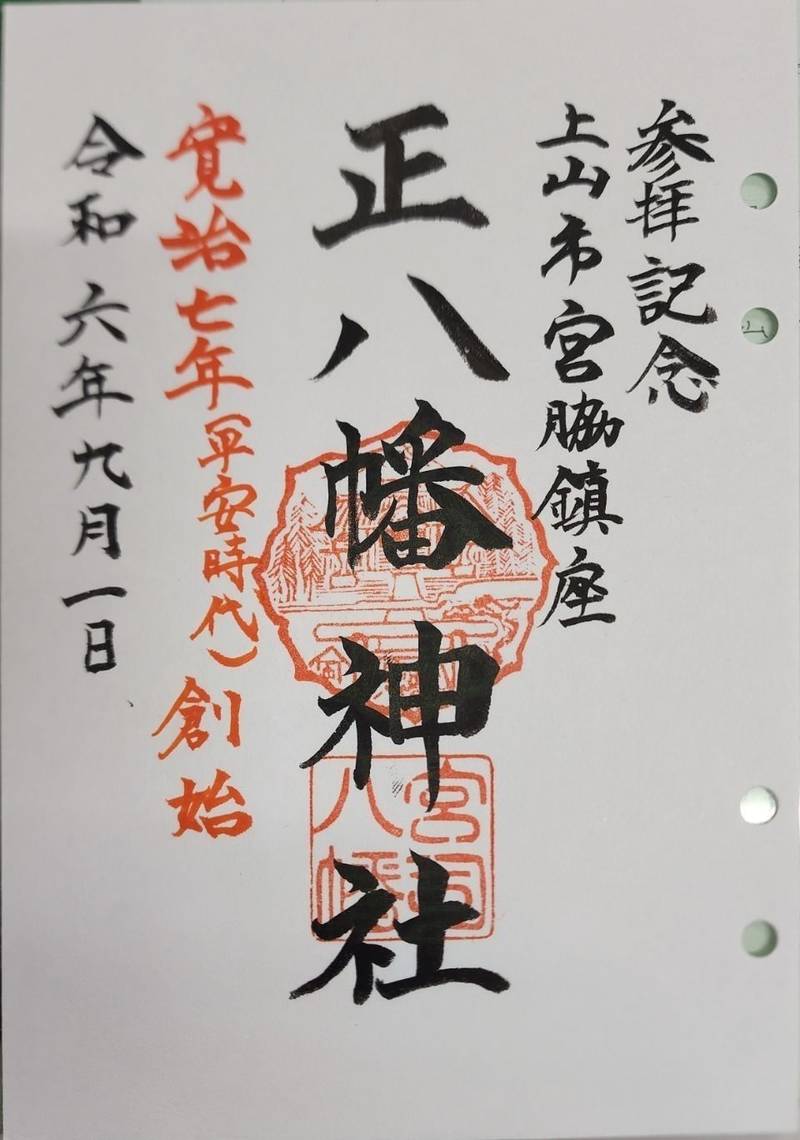 参拝記念
上山市宮脇鎮座
正八幡神社
寛治七年(平安時代)創始
令和六年九月一日
宮司
八幡